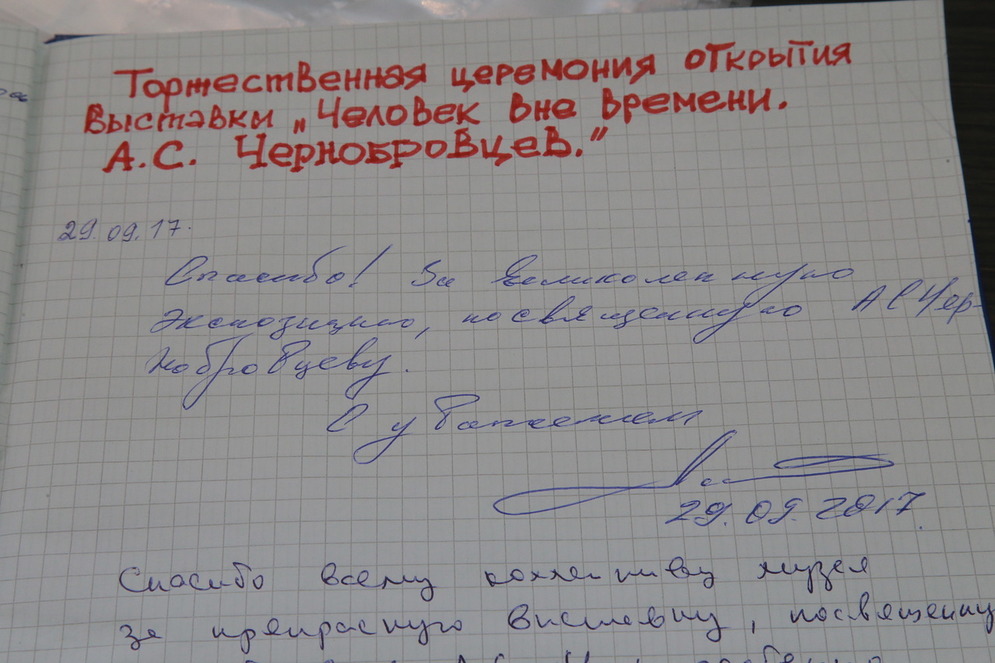 Торжественная церемония открытия
выставки „Человек вне времени.
А.С. Чернобровцев.”
29.09.17.
Спасибо! За великолепную
экспозицию, посвященную А С Чер-
нобровцеву.
С уважением
29.09.2017.
Спасибо всему коллективу музея
за прекрасную выставку, посвященну